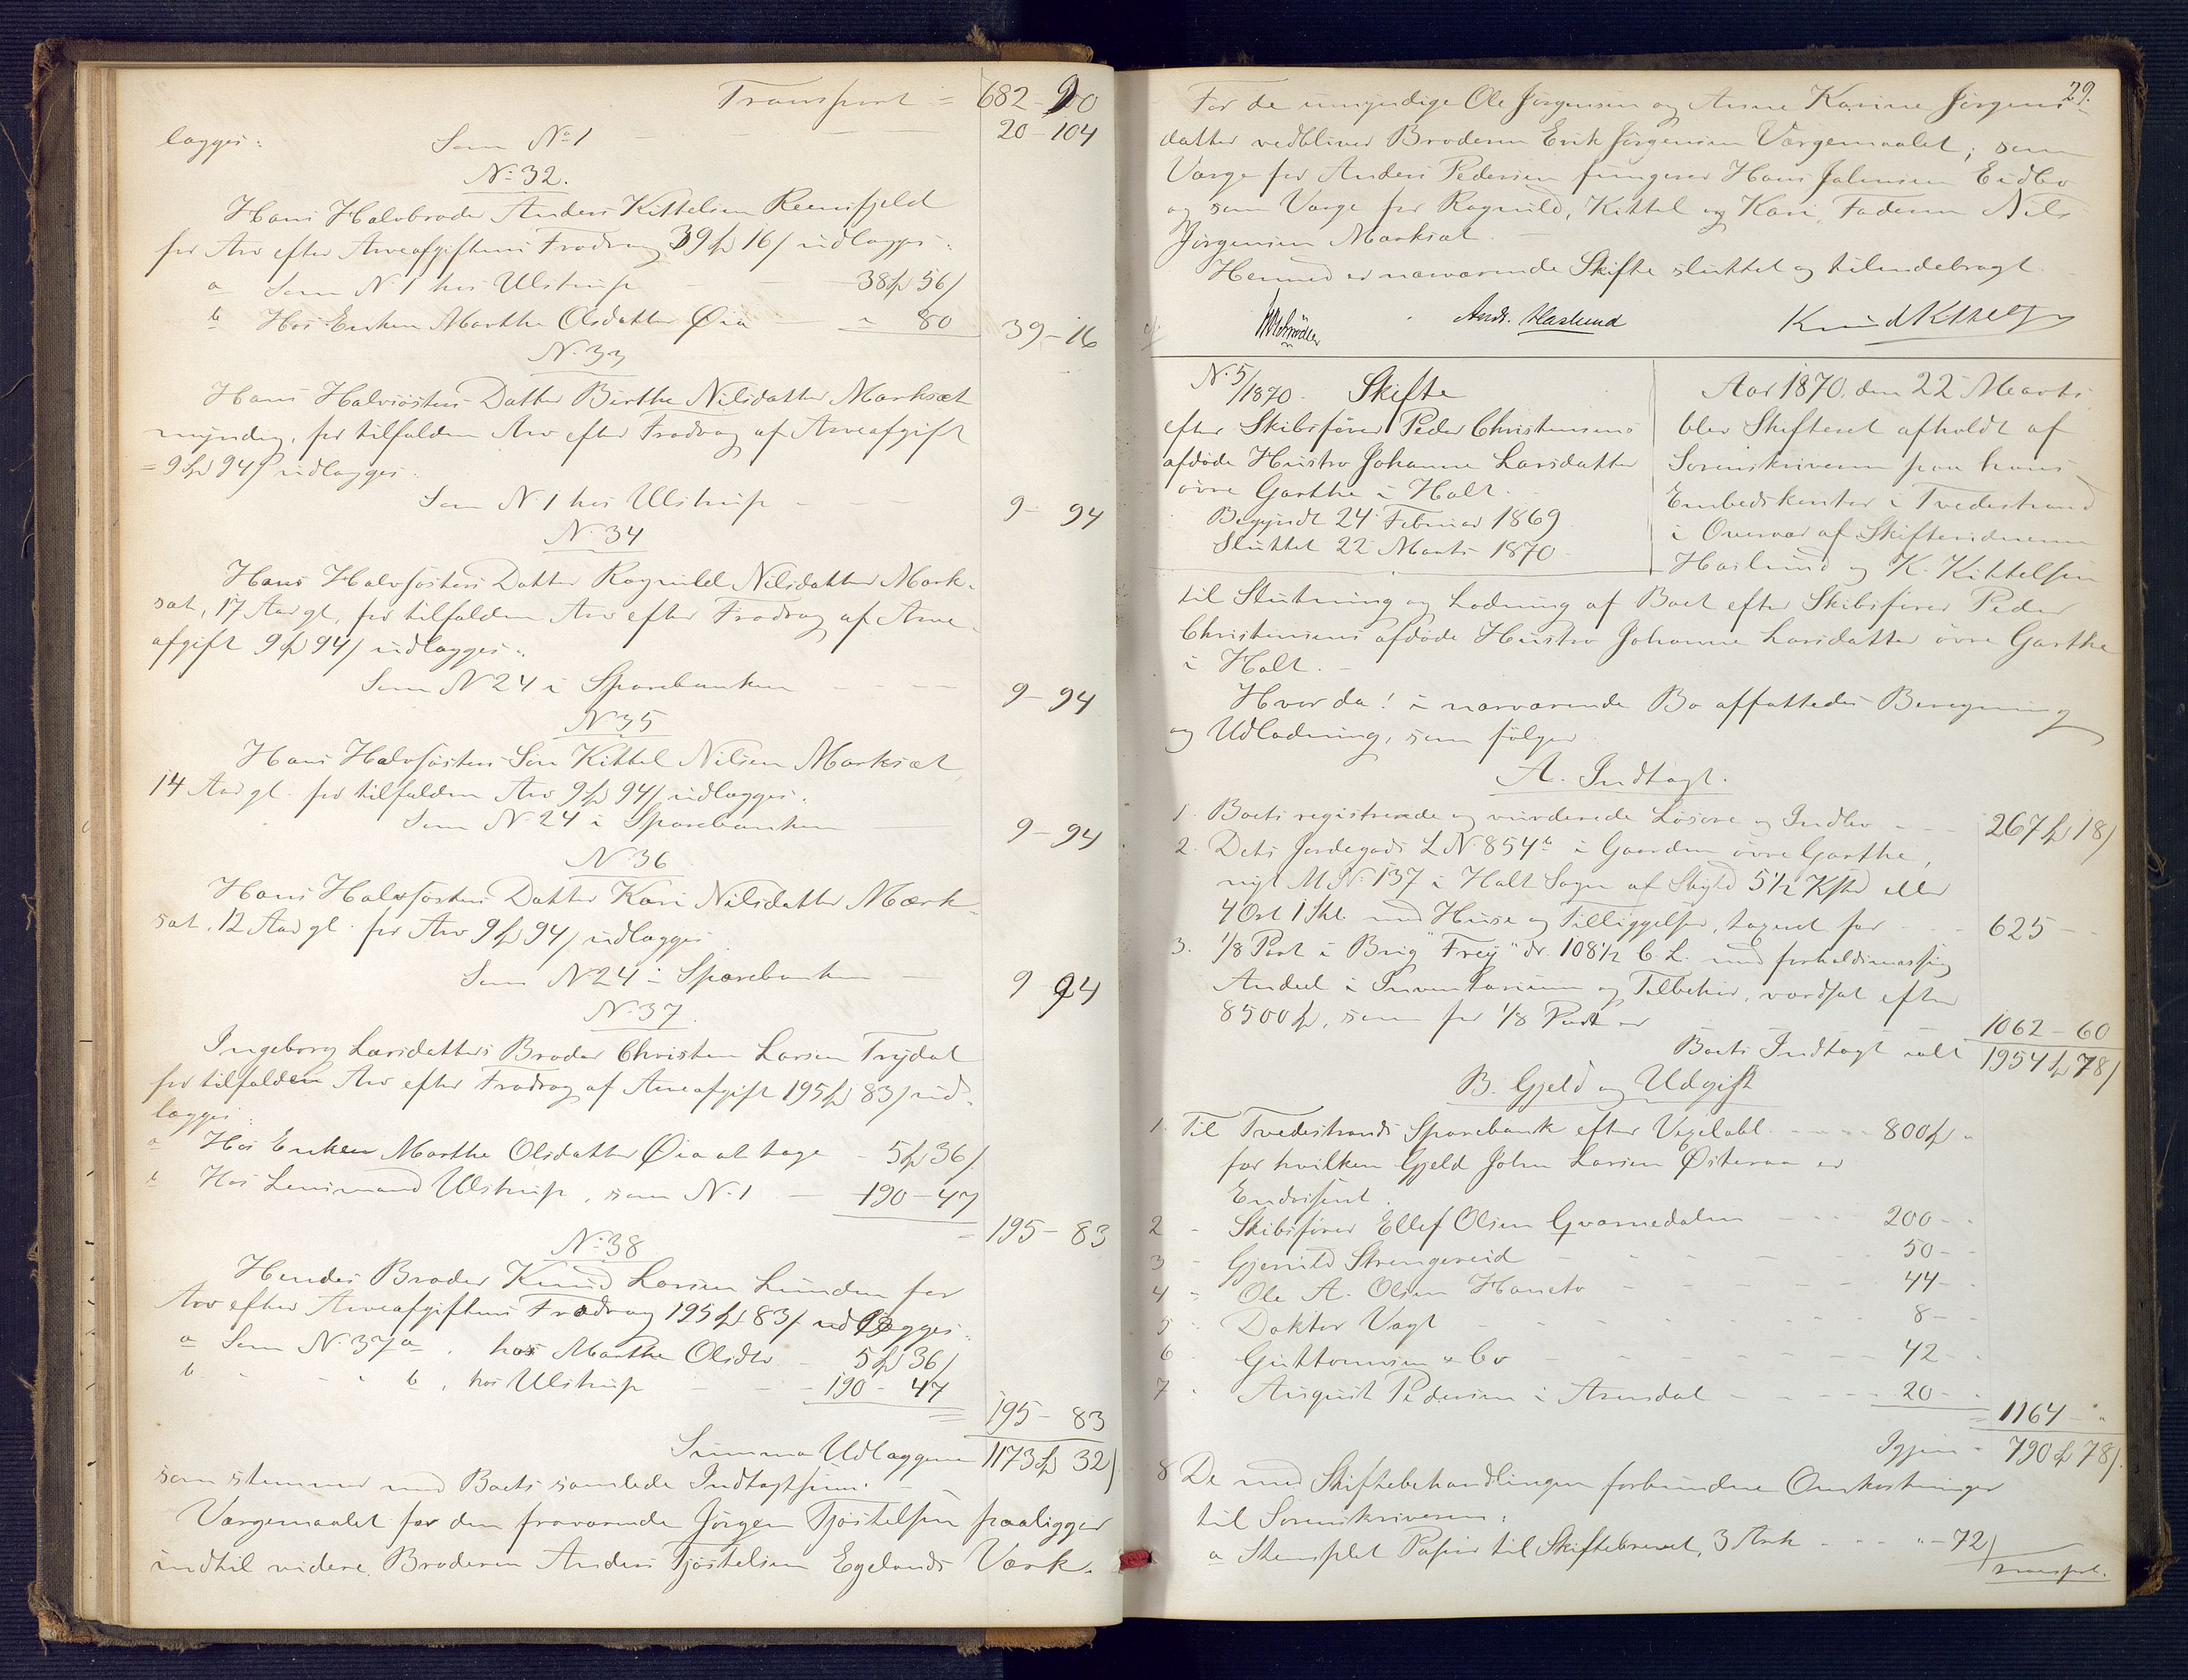 Transport = 682 - 90
lægges: Som No 1 - - - 20 - 104
No 32.
Hans Halvbroder Anders Kittelsen Reensfjeld
for Arv efter Arveafgiftens Fradrag 39 Spd 16 / udlægges:
a Som N 1 hos Ulstrup - - 38 Spd 56 /
b Hos Enken Marthe Olsdatter Øia - " 80
39 - 16
N. 33
Hans Halvsösters Datter Birthe Nilsdatter Marksæt
myndig, for tilfalden Arv efter Fradrag af Arveafgift
= 9 Spd 94 / udlægges:
Som N 1 hos Ulstrup - - 9 - 94
N. 34
Hans Halvsösters Datter Ragnild Nilsdatter Mark-
sæt, 17 Aar gl., for tilfalden Arv efter Fradrag af Arve-
afgift 9 Spd 94 / udlægges:
Som N 24 i Sparebanken - - - 9 - 94
N 35
Hans Halvsösters Sön Kittel Nilsen Marksæt
14 Aar gl. for tilfalden Arv 9 Spd 94 / udlægges:
Som N. 24 i Sparebanken - 9 - 94
N. 36
Hans Halvsösters Datter Kari Nilsdatter Mark-
sæt, 12 Aar gl. for Arv 9 Spd 94 / udlægges
Som N 24 i Sparebanken - 9 94
N. 37.
Ingeborg Larsdatters Broder Christen Larsen Trydal
for tilfalden Arv efter Fradrag af Arveafgift 195 Spd 83 / ud-
lægges:
a Hos Enken Marthe Olsdatter Øia at tage - 5 Spd 36 /
b Hos Lensmand Ulstrup, som N. 1 - 190 - 47
= 195 - 83
N. 38
Hendes Broder Knud Larsen Lunden for
Arv efter Arveafgiftens Fradrag 195 Spd 83 / udlægges:
a Som N. 37 a, hos Marthe Olsdtr - 5 Spd 36 /
b - - " b, hos Ulstrup - - 190 - 47
= 195 - 83
Summa Udlæggene 1173 Spd 32 /
som stemmer med Boets samlede Indtægtsum. -
Værgemaalet for den fraværende Jörgen Tjöstelsen paaligger
indtil videre Broderen Anders Tjöstelsen Egelands Værk.
29.
For de umyndige Ole Jörgensen og Anne Karine Jörgens-
datter vedbliver Broderen Erik Jörgensen Værgemaalet; som
Værge for Anders Pedersen fungerer Hans Johnsen Eidbo
og som Værge for Ragnild, Kittel og Kari, Faderen Nils
Jörgensen Marksæt. -
Hermed er nærværende Skifte sluttet og tilendebragt.
Andr. Haslund
N. 5/1870. Skifte
efter Skibsförer Peder Christensens
afdöde Hustro Johanne Larsdatter
övre Garthe i Holt.
Begyndt 24 Februar 1869
Sluttet 22 Marts 1870
Aar 1870, den 22 Marts
blev Skifteret afholdt af
Sorenskriveren paa hans
Embedskontor i Tvedestrand
i Overvær af Skiftevidnerne
Haslund og K. Kittelsen
til Slutning og Lodning af Boet efter Skibsförer Peder
Christensens afdöde Hustro Johanne Larsdatter övre Garthe
i Holt. -
Hvorda! i nærværende Bo affattedes Beregning
og Udlodning, som fölger
A. Indtægt.
1. Boets registrerede og vurderede Lösöre og Indbo - - 267 Spd 18 /
2. Dets Jordegods L N. 854 b i Gaarden övre Garthe,
nyt M N. 137 i Holt Sogn af Skyld 5 1/2 Kstd eller
4 Ort 1 Skl. med Huse og Tilliggelser, taxeret for - - 625 - -
3. 1/8 Part i Brig "Frey" dr. 108 1/2 C. L. med forholdsmæssig
Andeel i Inventarium og Tilbehör, værdsat efter
8500 Spd, som for 1/8 Part er 1062 - 60
Boets Indtægt ialt 1954 Spd 78 /
B. Gjeld og Udgift
1. Til Tvedestrands Sparebank efter Vexelobl. - - - 800 Spd "
for hvilken Gjeld John Larsen Østeraa er
Endossent.
2 - Skibsförer Ellef Olsen Qvarnedalen - - - 200 - -
3 - Gjeruld Strengereid - - - 50 - -
4 - Ole A. Olsen Haneto - - - 44 - -
5 - Doktor Vogt - - - 8 - -
6 - Guttormsen & Co - - - 42 - -
7 - August Pedersen i Arendal - - - 20 - -
= 1164 - "
Igjen - 790 Spd 78 /.
8 De med Skiftebehandlingen forbundne Omkostninger
til Sorenskriveren:
a Stemplet Papir til Skiftebrevet, 3 Ark - - - " - 72 /
Transport.